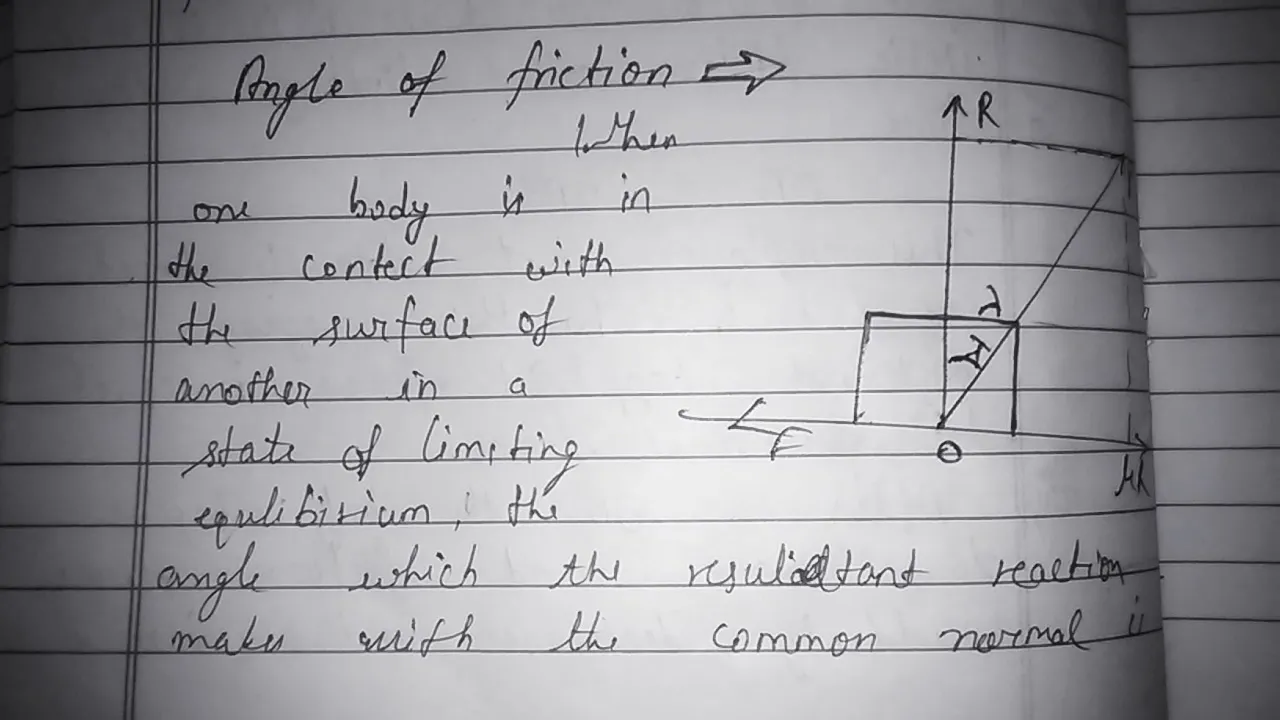 Angle of friction ⇒
When
one body is in
the contect with
the surface of
another in a
state of limiting
equlibirium, the
angle which the resultant reaction
makes with the common normal is
R
λ
λ
F
O
μR